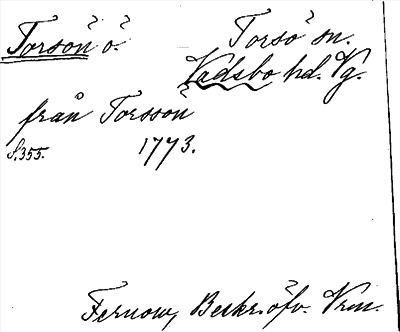 Torsön ö. Torsö sn.
Vadsbo hd. Vg.
från Torssön
S.355. 1773.
Fernow, Beskr. öfv. Vrm.